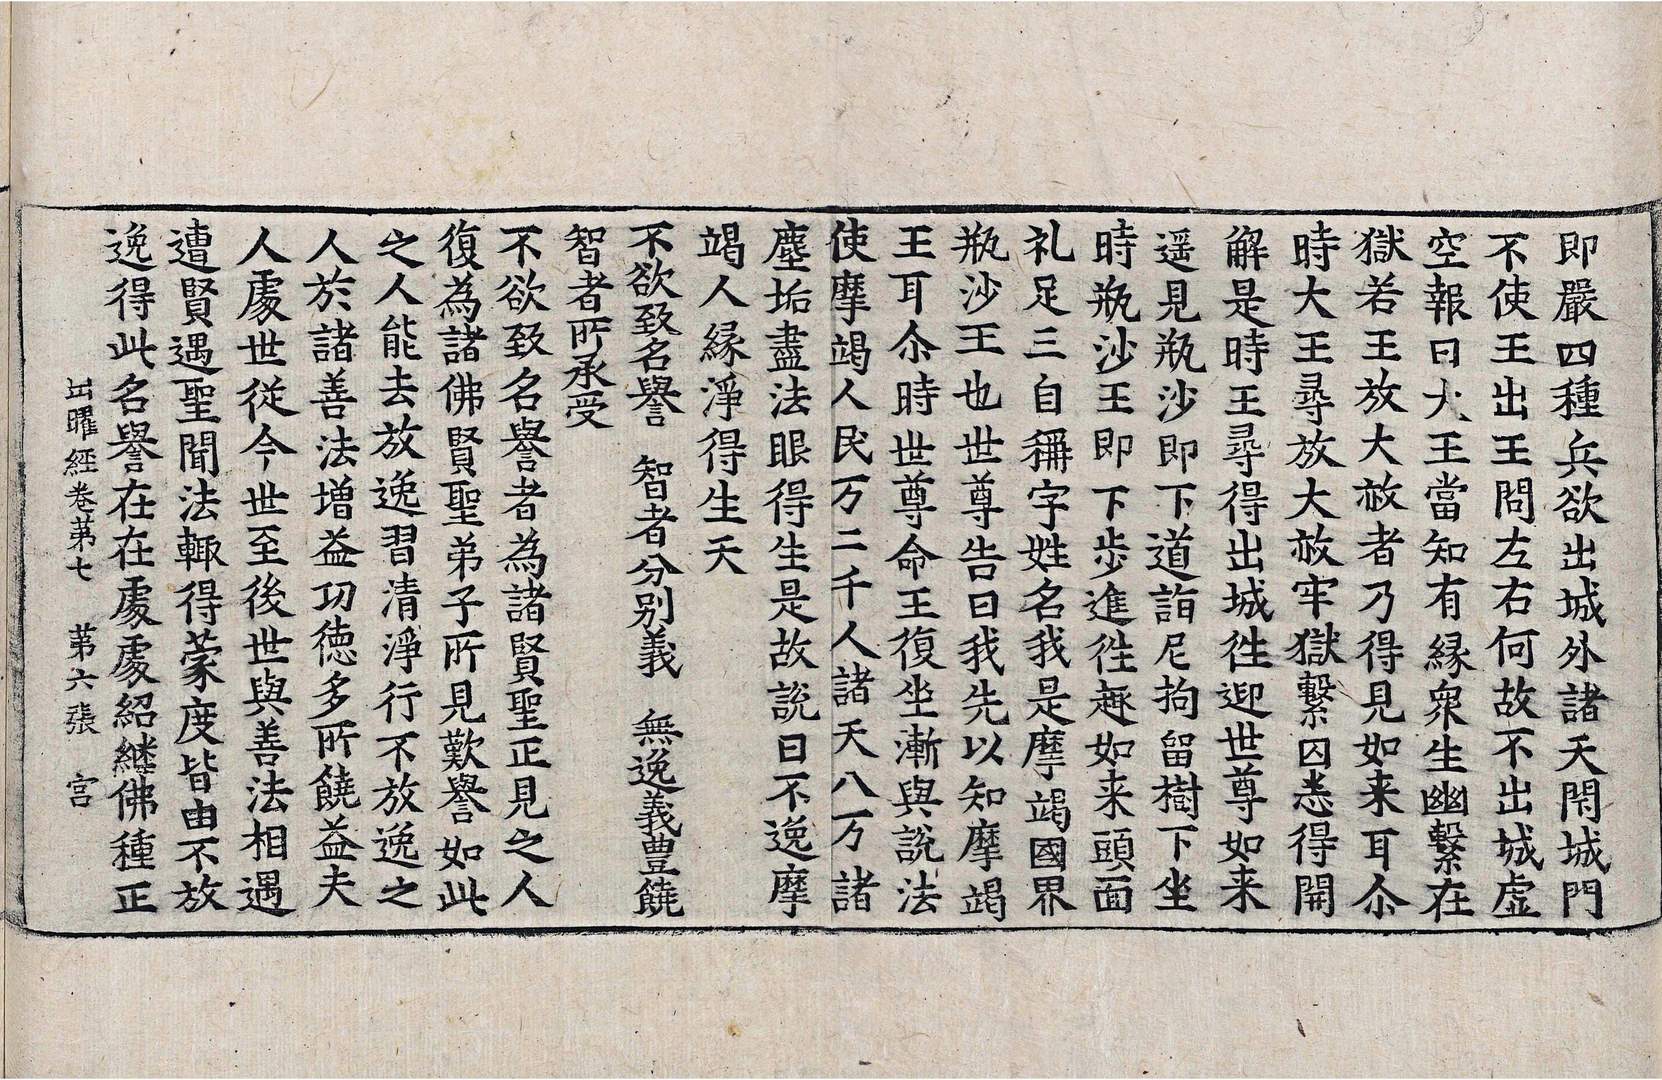 即嚴四種兵欲出城外諸天閇城門
不使王出王問左右何故不出城虛
空報曰大王當知有緣衆生幽繫在
獄若王放大赦者乃得見如来耳尒
時大王尋放大赦牢獄繫囚恚得開
解是時王尋得出城徃迎世尊如来
遥見瓶沙即下道詣尼拘留樹下坐
時瓶沙王即下步進徃趣如来頭面
礼足三自稱字姓名我是摩竭國界
瓶沙王也世尊告曰我先以知摩竭
王耳尒時世尊命王復坐漸與說法
使摩竭人民万二千人諸天八万諸
塵垢盡法眼得生是故說曰不逸摩
竭人緣淨得生天
不欲致名譽　智者分別義　無逸義豊饒
智者所承受
不欲致名譽者為諸賢聖正見之人
復為諸佛賢聖弟子所見歎譽如此
之人能去放逸習清淨行不放逸之
人於諸善法增益功徳多所饒益夫
人處世從今世至後世與善法相遇
遭賢遇聖聞法輙得蒙度皆由不放
逸得此名譽在在處處紹継佛種正
出曜經卷苐七　苐六張　宫